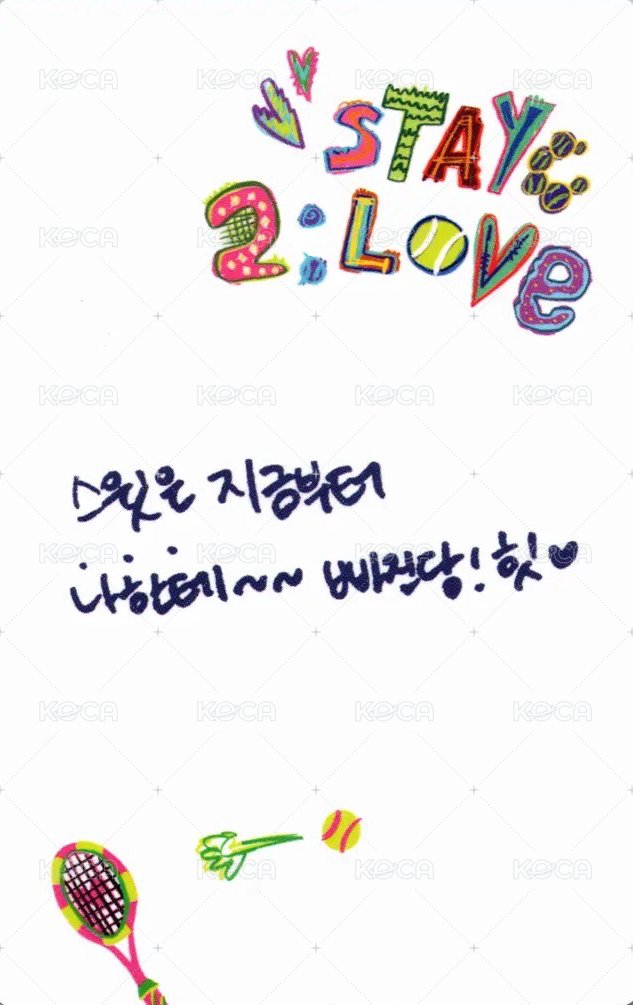 STAYC
2:LOVE
스윗은 지금부터
나한테~~ 빠진당! 힛♥
KOCA